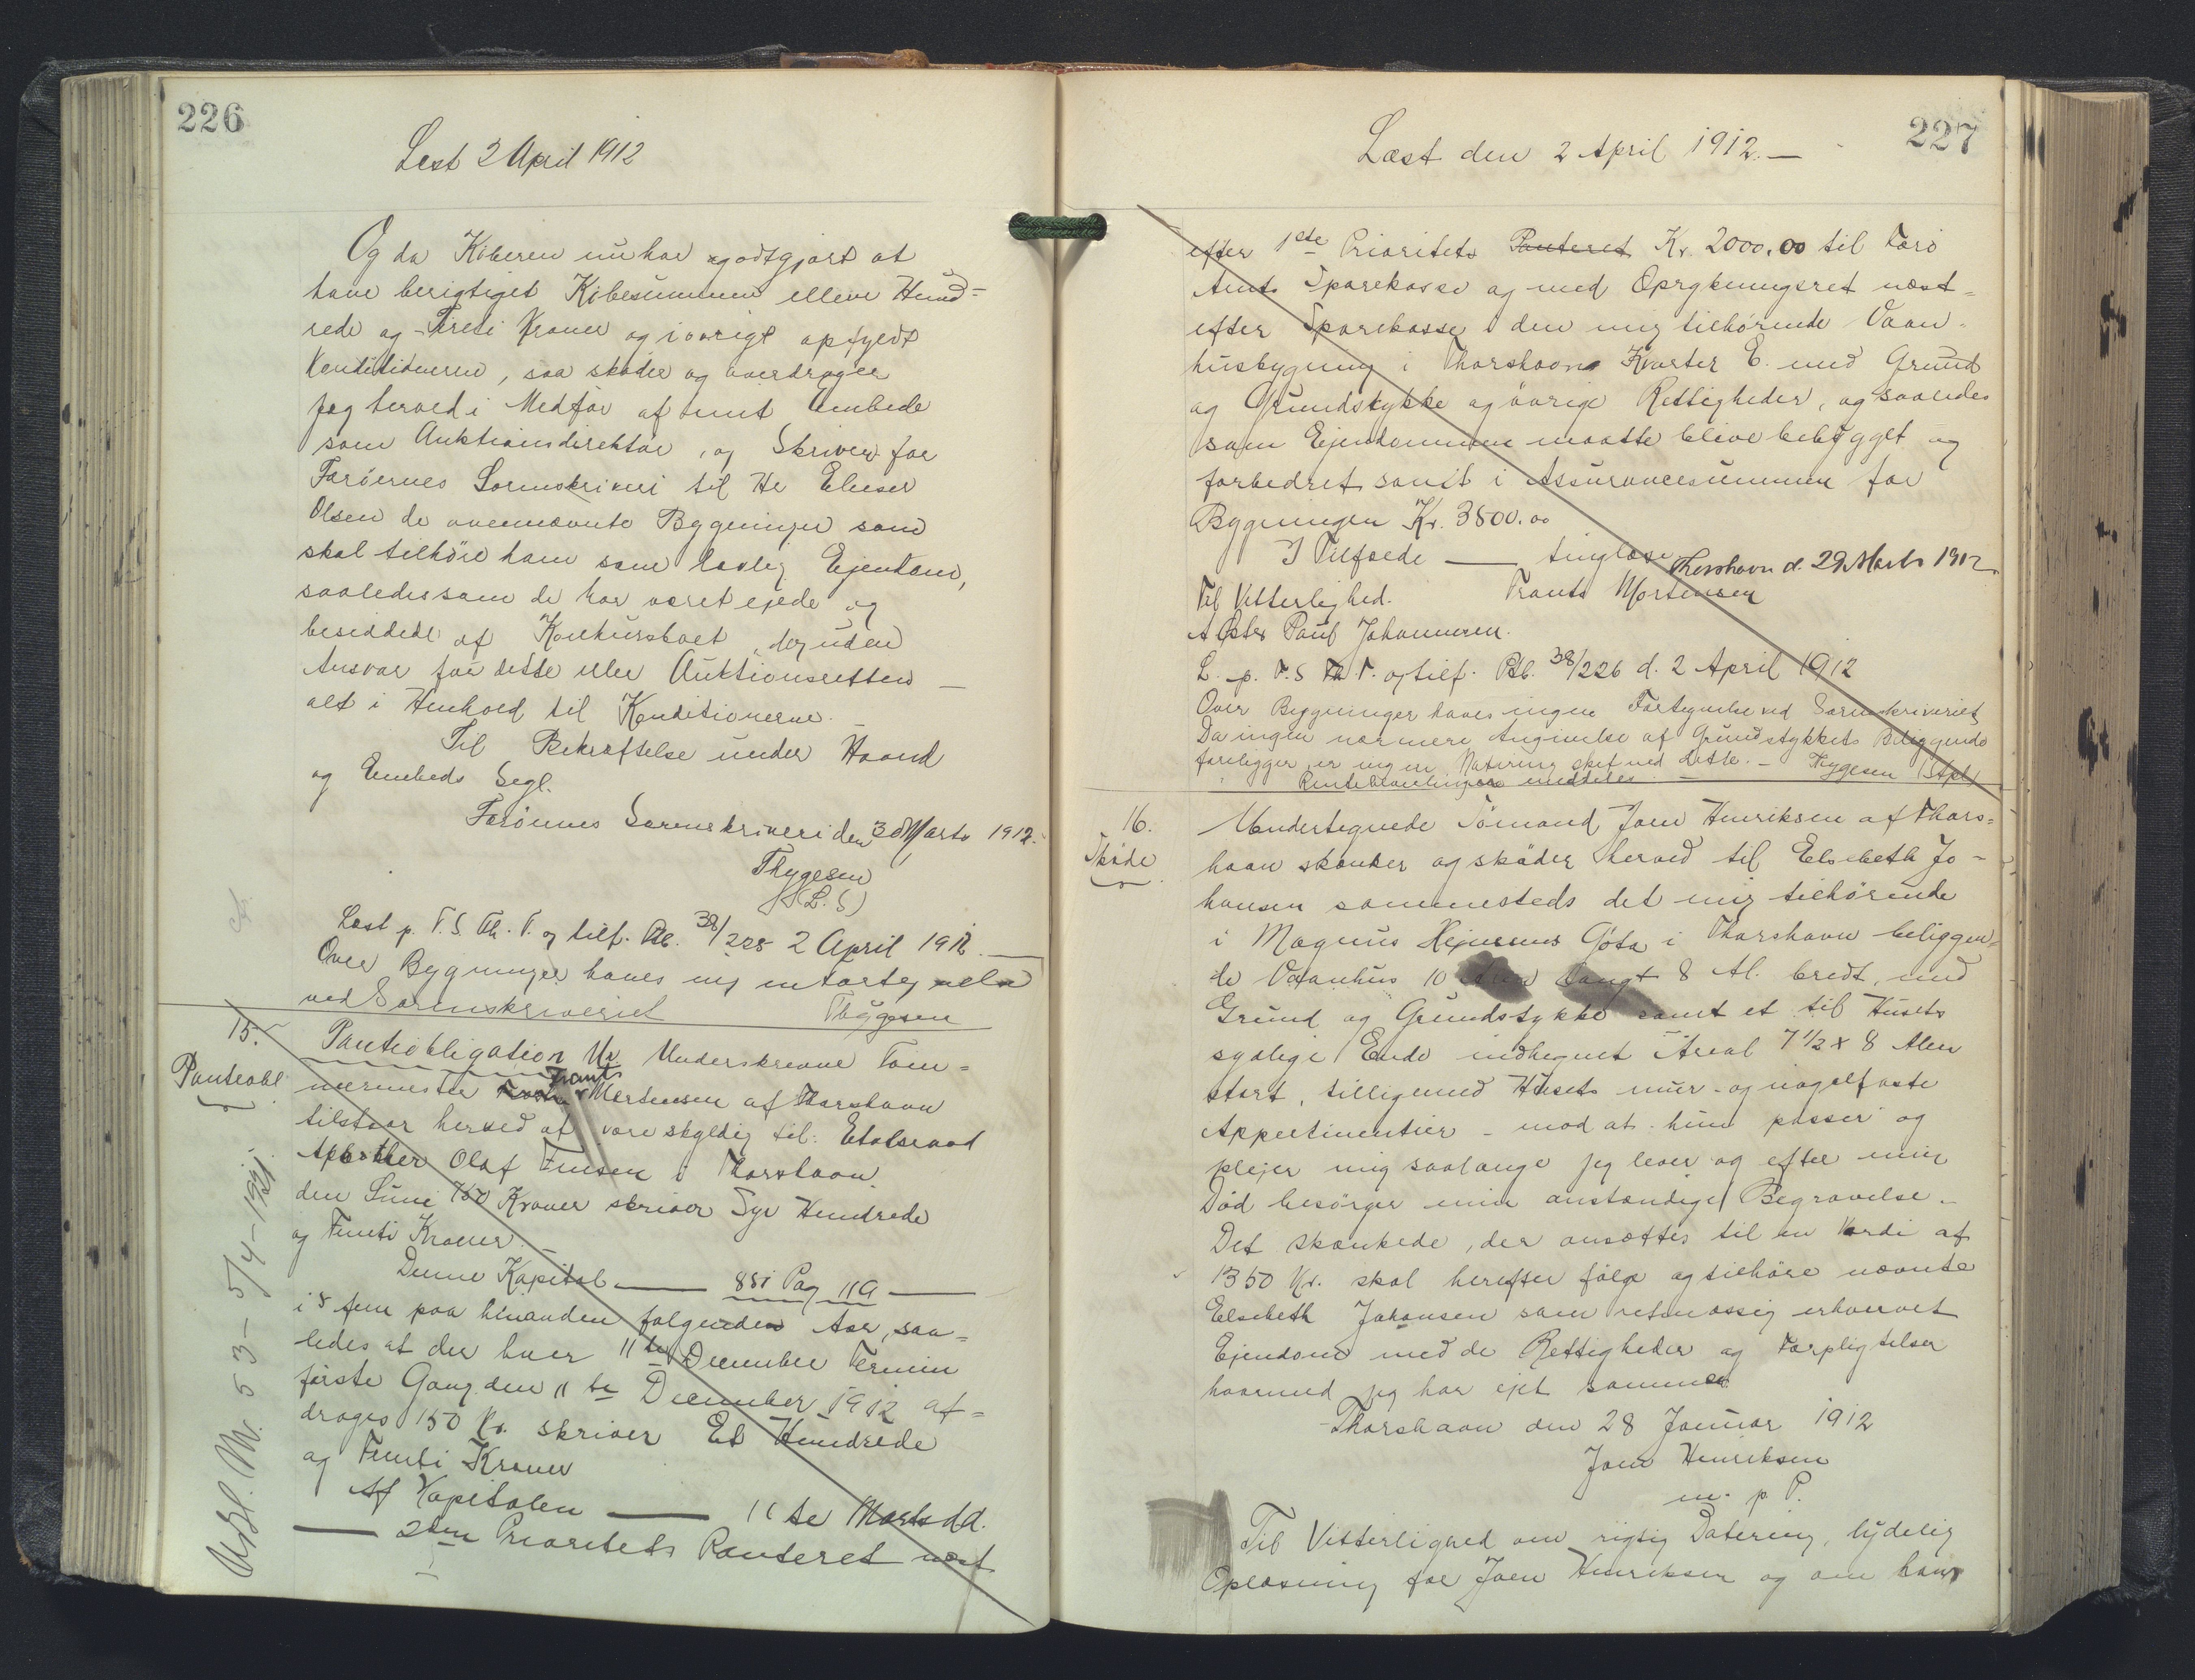 226
Læst 2 April 1912
Og da Köberen nu har godtgjort at
have berigtiget Köbesummen elleve Hund=
rede og Tireti Kroner og iövrigt opfyldt
Konditionerne, saa skøder og overdrager
jeg herved i Medför af mit Embede
som Auktionsdirektör, og Skriver for
Færöernes Sorenskriveri til Hr Elieser
Olsen de ovennævnte Bygninger som
skal tilhöre ham som lovlig Ejendom,
saaledes som de har været ejede og
besiddede af Konkursboet, dog uden
Ansvar for dette eller Auktionsretten —
alt i Henhold til Konditionerne. —
Til Bekræftelse under Haand
og Embeds Segl.
Færöernes Sorenskriveri den 30 Marts 1912.
Thygesen
(L.S)
Læst p. F.S. Th. T. og tilf. Ptb. 38/225 2 April 1912. —
Over Bygninger haves ingen Fortegnelse
ved Sorenskriveriet Thygesen
15.
Panteobl.
Panteobligation Undertegnede Töm=
mermester Frants Mortensen af Thorshavn
tilstaar herved at være skyldig til: Etatsraad
Apotheker Olaf Finsen i Thorshavn.
den Sum 750 Kroner skriver Syv Hundrede
og Femti Kroner. —
Denne Kapital —— 851 Pag 119 ——
i 5 fem paa hinanden følgende Aar, saa=
ledes at der hver 11te December Termin
förste Gang den 11te December 1912 af=
drages 150 Kr. skriver Et Hundrede
og Femti Kroner
Af Kapitalen —— 11te Marts d.A.
—— 2den Prioritets Panteret næst
Udsl. Nr. 53 - 5/4 - 1921.
227
Læst den 2 April 1912. —
efter 1ste Prioritets Panteret Kr. 2000.00 til Færö
Amts Sparekasse og med Oprykningsret næst=
efter Sparekasse i den mig tilhørende Vaan=
husbygning i Thorshavns Kvarter E. med Grund
og Grundstykke og övrige Rettigheder, og saaledes
som Ejendommen maatte blive bebygget og
forbedret samt i Assurancesummen for
Bygningen Kr. 3500.00
I Tilfælde —— tinglæse. Thorshavn d. 29 Marts 1912.
Til Vitterlighed. Frants Mortensen
A Öster Poul Johannesen.
L. p. F.S Th. T. og tilf. Ptb. 38/226 d. 2 April 1912
Over Bygninger haves ingen Fortegnelse ved Sorenskriveriet
Da ingen nærmere Angivelse af Grundstykkets Beliggende
foreligger er ingen Notering sket ved dette. — Thygesen (Stpl)
16.
Skøde
Undertegnede Tömand Joen Henriksen af Thors=
havn skænker og skøder herved til Elsebeth Jo-
hansen sammesteds det mig tilhørende
i Magnus Hejnesens Göta i Thorshavn beliggen=
de Vaanhus 10 Alen langt 8 Al. bredt, med
Grund og Grundstykke samt et til Husets
sydlige Ende indhegnet Areal 7 1/2 x 8 Alen
stort, tilligemed Husets mur- og nagelfaste
Appertinentier - mod at hun passer og
plejer mig saalænge jeg lever og efter min
Död besörger min anstændige Begravelse. —
Det skænkede, der ansættes til en Værdi af
1350 Kr. skal herefter fölge og tilhöre nævnte
Elsebeth Johansen som retmæssig erhvervet
Ejendom med de Rettigheder og Forpligtelser
hvormed jeg har ejet samme
Thorshavn den 28 Januar 1912
Joen Henriksen
m. p P.
Til Vitterlighed om rigtig Datering, tydelig
Oplæsning for Joen Henriksen og om hans